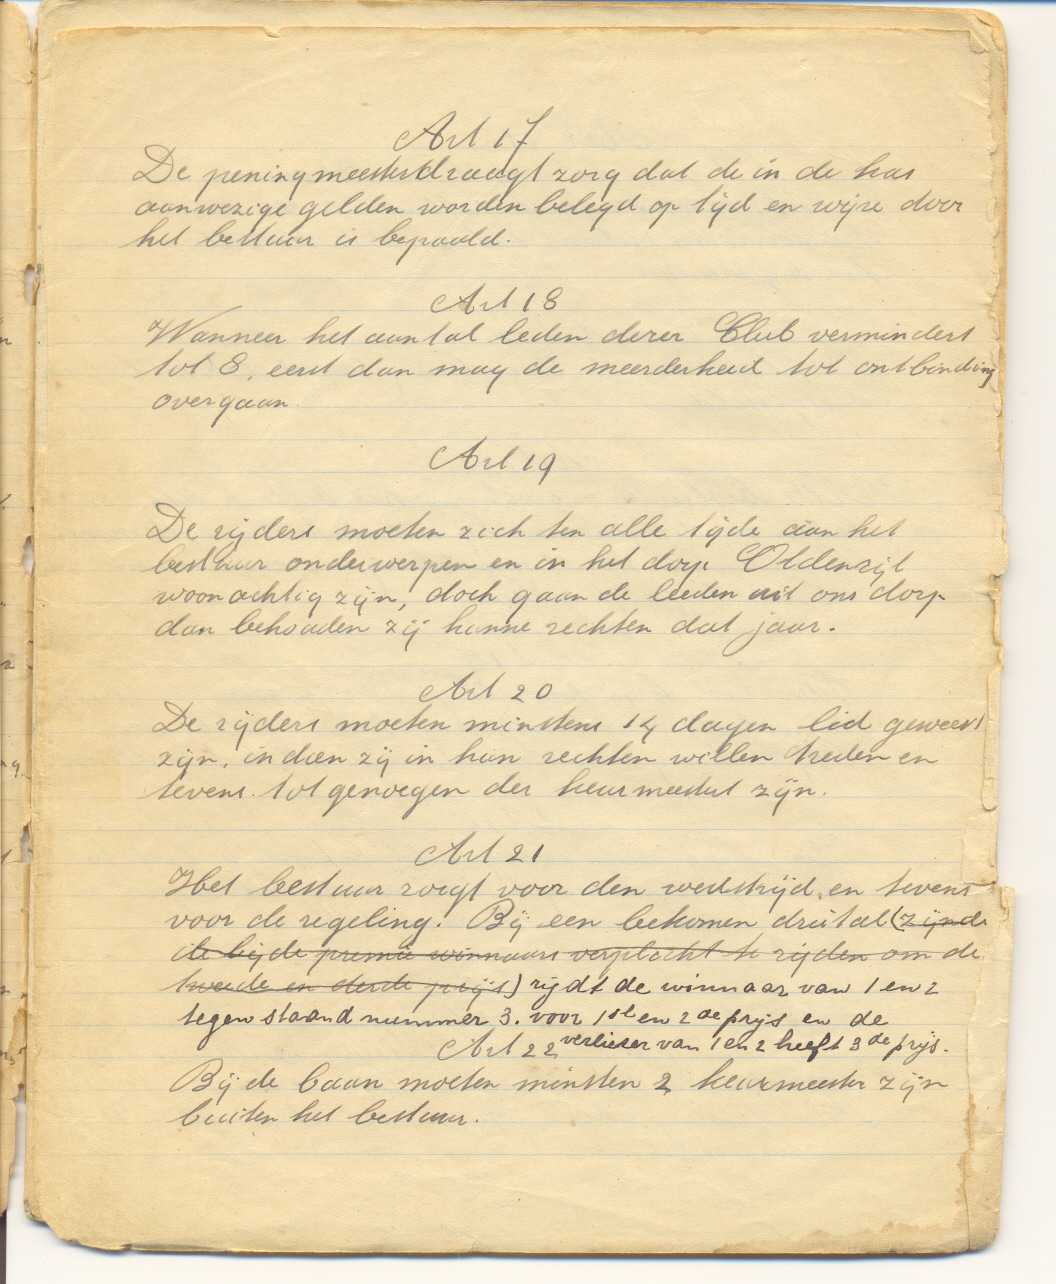 Art 17
De peningmeester draagt zorg dat de in de kas
aanwezige gelden worden belegd op tijd en wijze door
het bestuur is bepaald.
Art 18
Wanneer het aantal leden dezer Club vermindert
tot 8, eerst dan mag de meerderheid tot ontbinding
overgaan.
Art 19
De rijders moeten zich ten alle tijde aan het
bestuur onderwerpen en in het dorp Oldenzijl
woonachtig zijn, doch gaan de leeden uit ons dorp
dan behouden zij hunne rechten dat jaar.
Art 20
De rijders moeten minstens 14 dagen lid geweest
zijn, indien zij in hun rechten willen treden en
tevens tot genoegen der keurmeester zijn.
Art 21
Het bestuur zorgt voor den wedstrijd, en tevens
voor de regeling. Bij een bekomen drietal (zijnde
de bijde premie winnaars verplicht te rijden om de
tweede en derde prijs) rijdt de winnaar van 1 en 2
tegen staand nummer 3. voor 1ste en 2de prijs en de
verliezer van 1 en 2 heeft 3de prijs.
Art 22
Bij de baan moeten minsten 2 keurmeester zijn
buiten het bestuur.